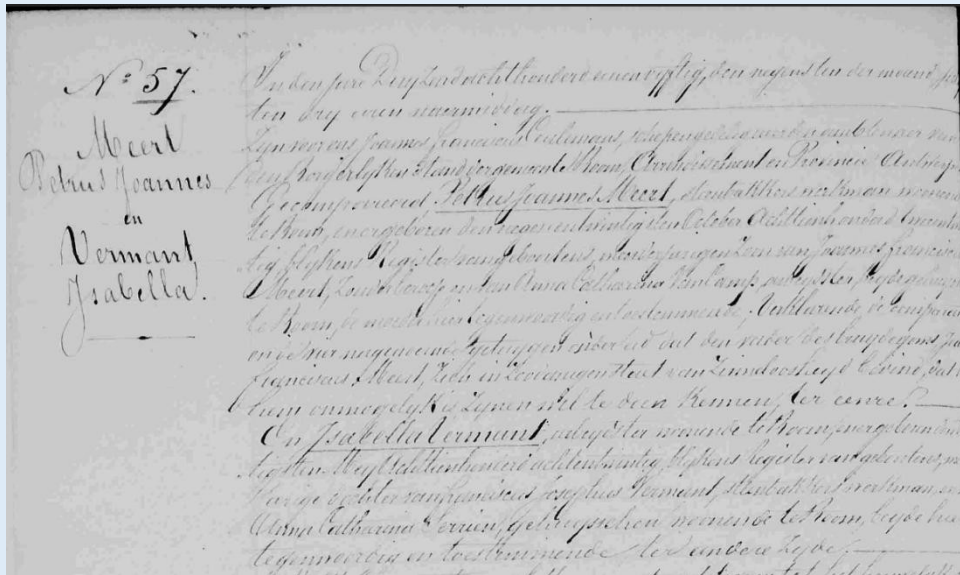 N° 57.
Meert
Petrus Joannes
en
Vermant
Isabella.
In den jare Duyzend achthonderd eenenvyftig, den negensten der maand
ten dry uren naermiddag.
Zyn voor ons Joannes Franciscus Ceulemans, schepen gedelegueerden ambtenaer van
den Borgerlyken Stand der gemeente Boom, Arrondissement en Provincie Antwerpen
Gecompareerd Petrus Joannes Meert, steenbakkers werkman woonende
te Boom, en er geboren den negenentwintigsten October Achttienhonderd
tig blykens Register van geboortens, minderjarigen zoon van Joannes Franciscus
Meert, zonder beroep en van Anna Catharina Van Camp, arbeydster, beyde
te Boom, de moeder hier tegenwoordig en toestemmende. Verklarende de comparanten
en de hier nagenoemde getuygen onder eed dat den vader des bruydegoms, Joannes
Franciscus Meert, zich in zoodanigen staet van zinneloosheyd bevind, dat het
hem onmogelyk is zynen wil te doen kennen, ter eenre.
En Isabella Vermant, arbeydster woonende te Boom, en er geboren den
tigsten Mey Achttienhonderd achtentwintig, blykens register van geboortens,
jarige dochter van Franciscus Josephus Vermant, steenbakkers werkman, en
Anna Catharina Verrien, gehuysschen woonende te Boom, beyde hier
tegenwoordig en toestemmende ter andere zyde,